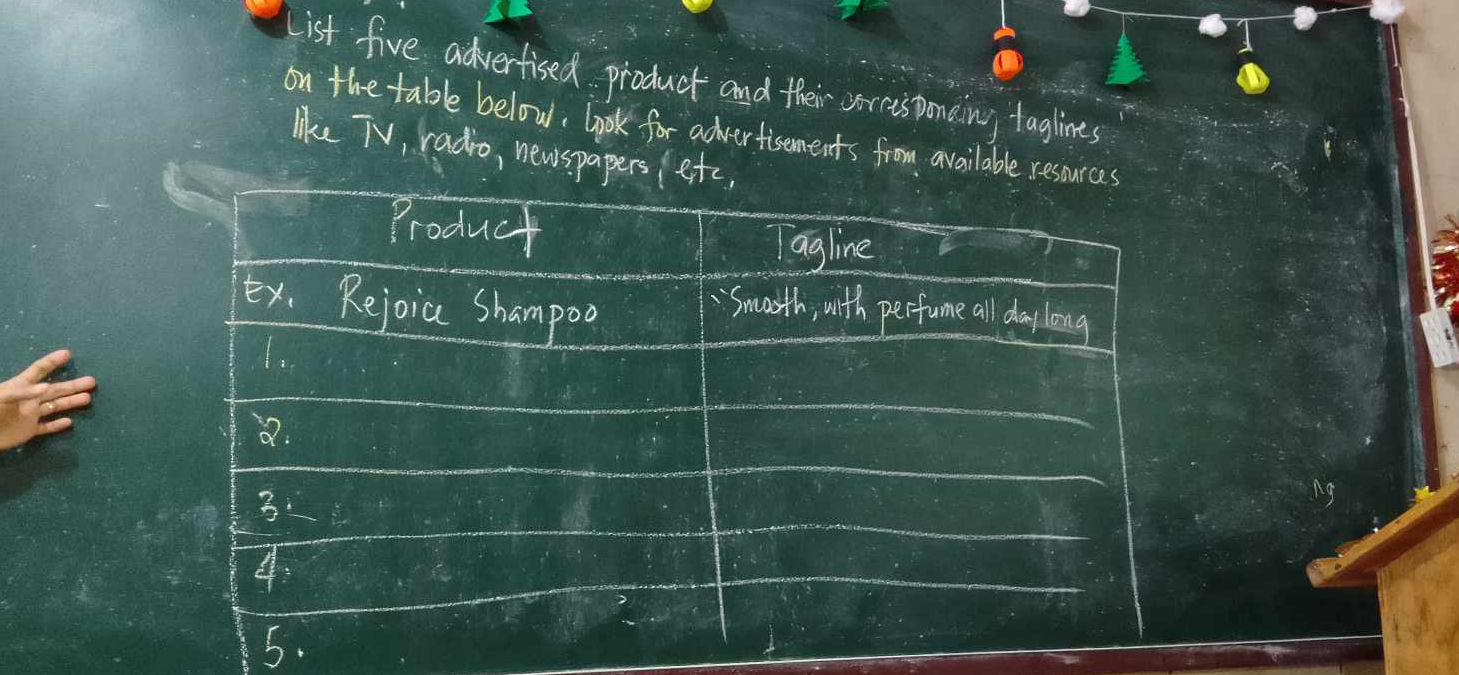 List five advertised product and their corresponding taglines
on the table below. Look for advertisements from available resources
like TV, radio, newspapers, etc.
Product Tagline
Ex. Rejoice Shampoo "Smooth, with perfume all day long
1.
2.
3.
4.
5.
ng